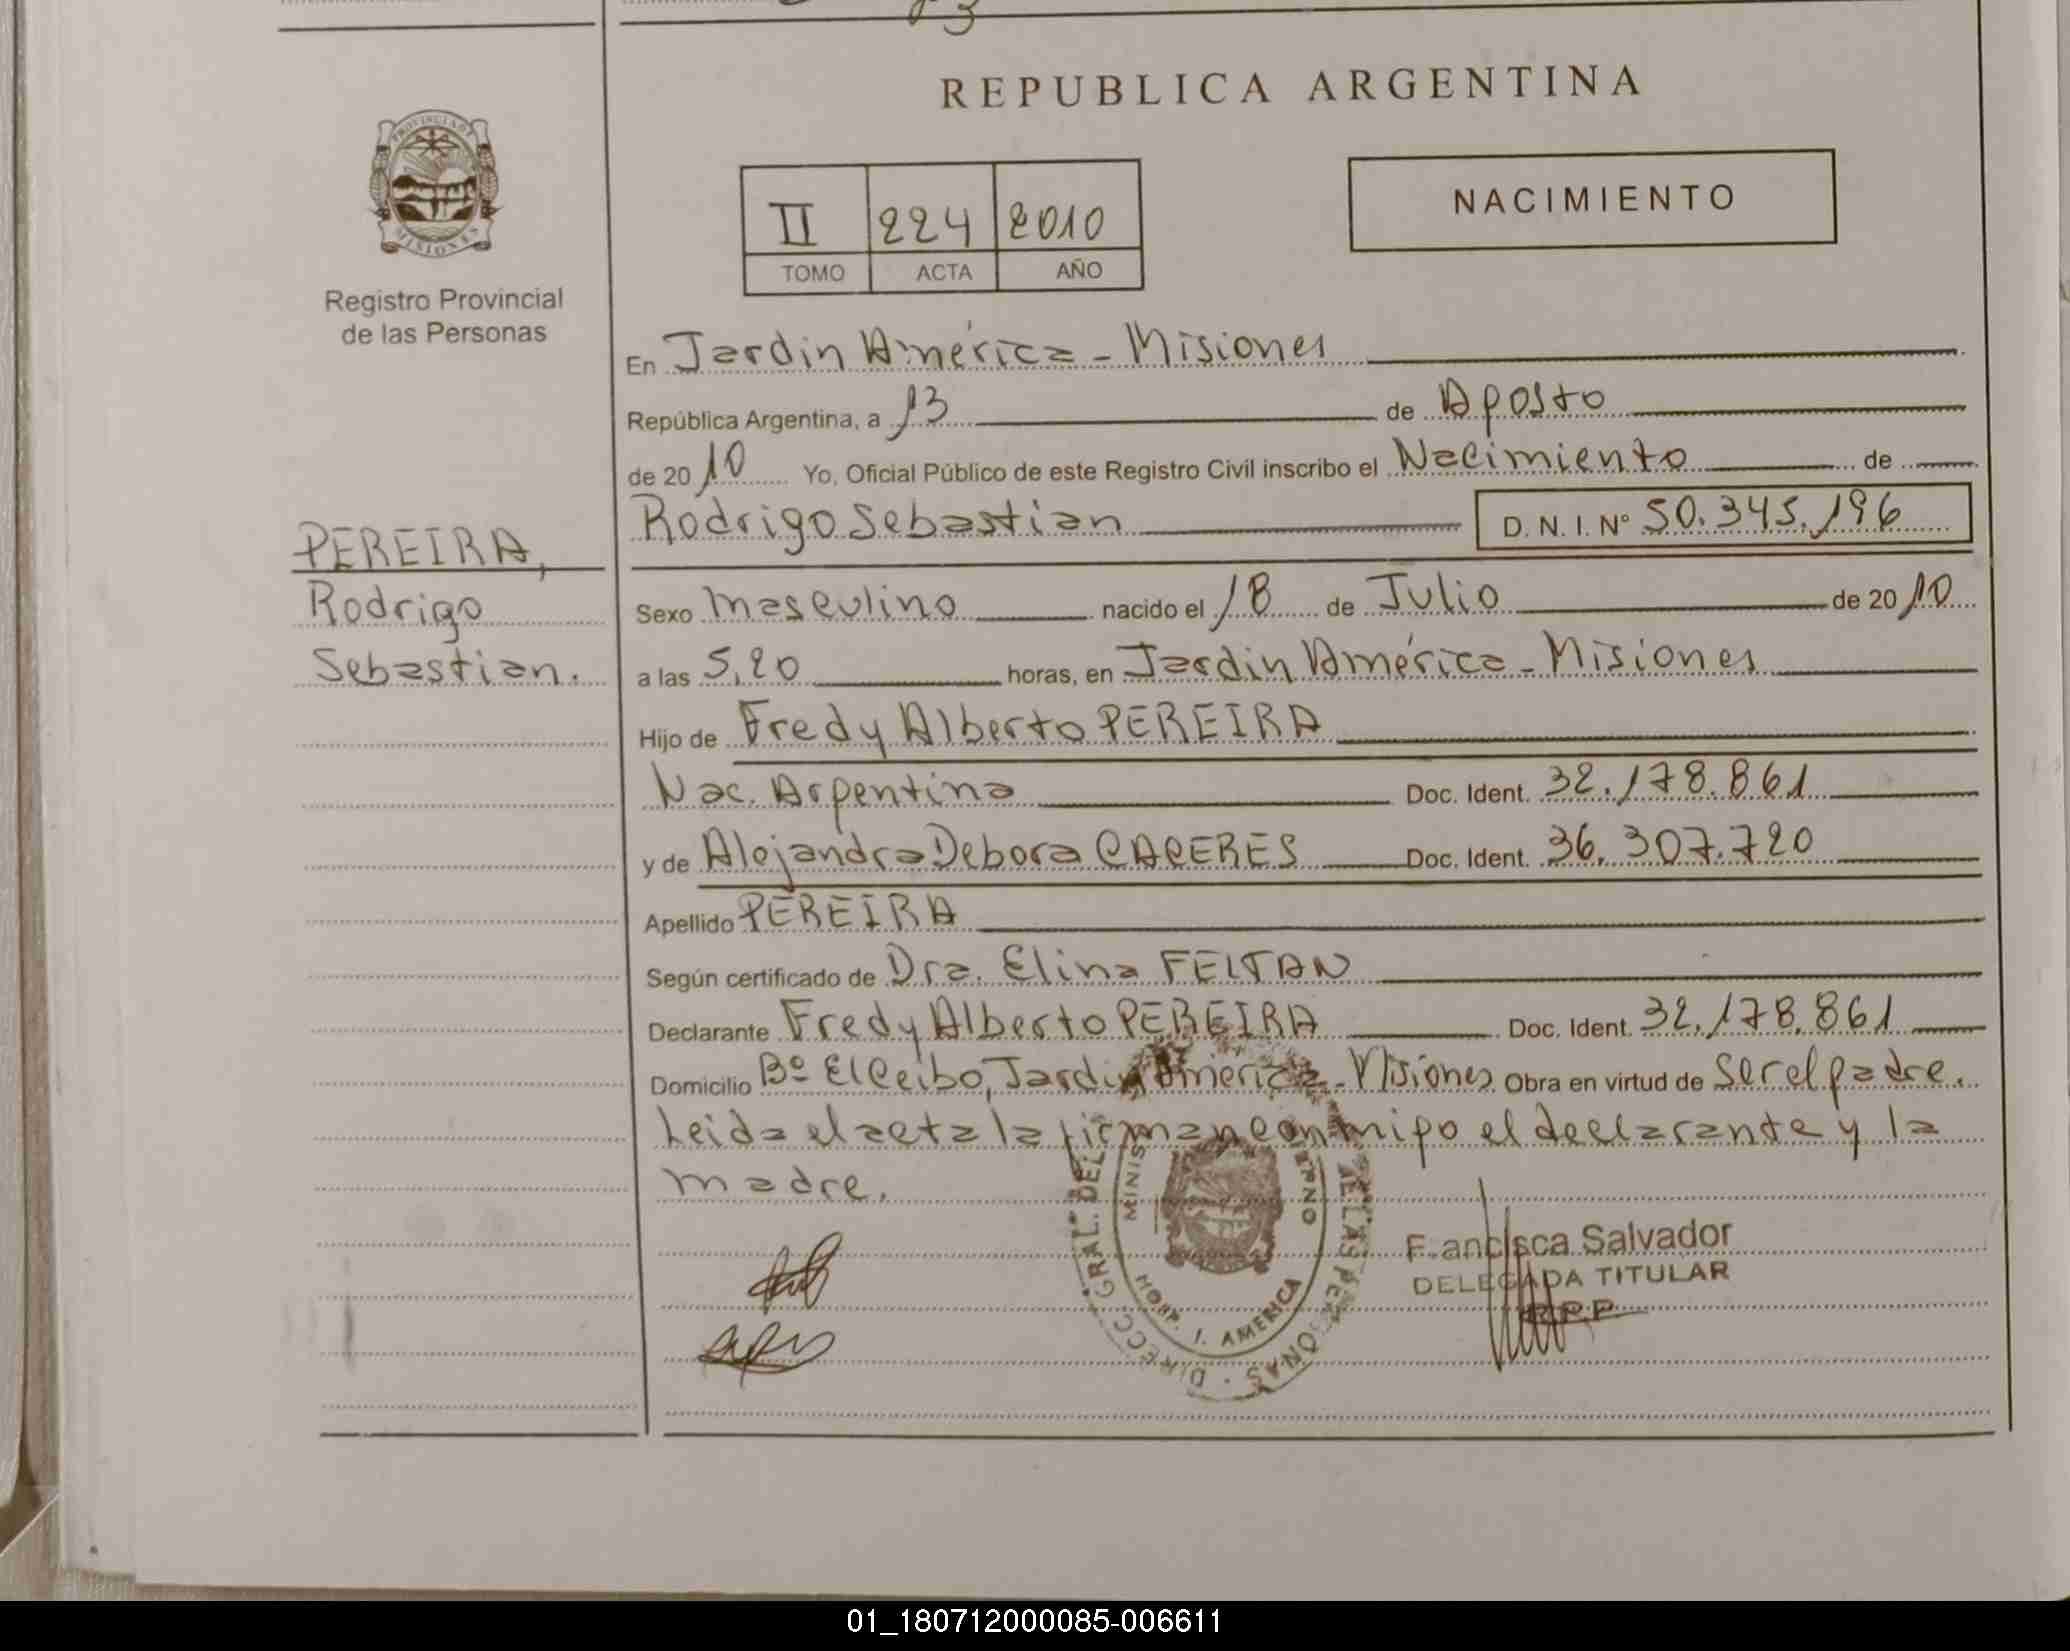 REPUBLICA ARGENTINA
PROVINCIA DE
MISIONES
Registro Provincial
de las Personas
II 224 2010
TOMO ACTA AÑO
NACIMIENTO
En Jardin América - Misiones
República Argentina, a 13 de Agosto
de 20 10 Yo, Oficial Público de este Registro Civil inscribo el Nacimiento de
Rodrigo Sebastian D. N. I. Nº 50.345.196
PEREIRA,
Rodrigo
Sebastian.
Sexo masculino nacido el 18 de Julio de 20 10
a las 5,20 horas, en Jardin América - Misiones
Hijo de Fredy Alberto PEREIRA
Nac. Argentina Doc. Ident. 32.178.861
y de Alejandra Debora CACERES Doc. Ident. 36.307.720
Apellido PEREIRA
Según certificado de Dra. Elina FELTAN
Declarante Fredy Alberto PEREIRA Doc. Ident. 32.178.861
Domicilio Bº El Ceibo, Jardin América - Misiones Obra en virtud de ser el padre.
Leida el acta la firman conmigo el declarante y la
madre.
DIRECC. GRAL. DEL PERSONAS
HOSP. J. AMERICA
Francisca Salvador
DELEGADA TITULAR
R.P.P.
01_180712000085-006611